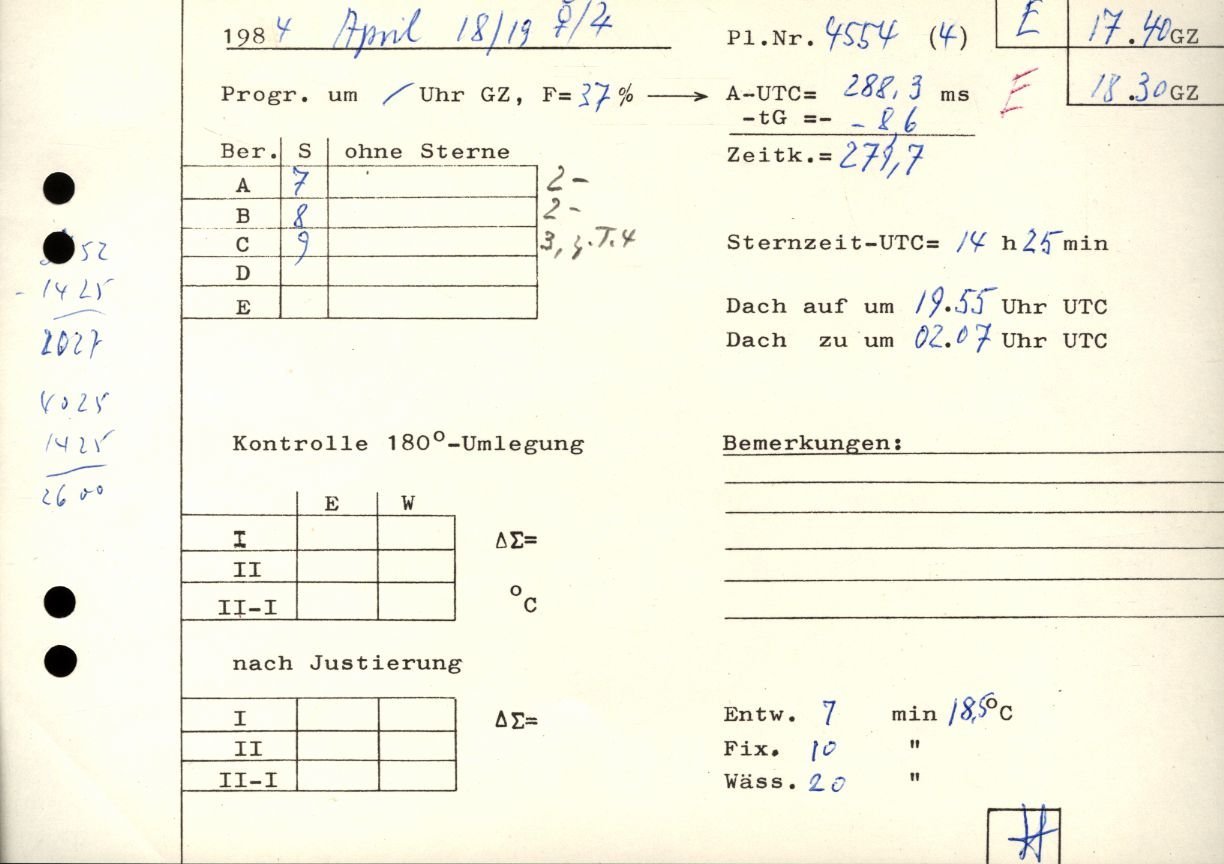 1984 April 18/19 ☿/♃
Pl.Nr. 4554 (4)
E 17.40 GZ
Progr. um / Uhr GZ, F= 37 % → A-UTC= 288,3 ms
E 18.30 GZ
-tG =- - 8,6
Zeitk.= 279,7
Ber. S ohne Sterne
A 7 2-
B 8 2-
C 9 3, z.T.4
D
E
52
- 1425
2027
4025
1425
2600
Sternzeit-UTC= 14 h 25 min
Dach auf um 19.55 Uhr UTC
Dach zu um 02.07 Uhr UTC
Kontrolle 180°-Umlegung
E W
I ΔΣ=
II
II-I °C
Bemerkungen:
nach Justierung
I ΔΣ=
II
II-I
Entw. 7 min 18,5°C
Fix. 10 "
Wäss. 20 "